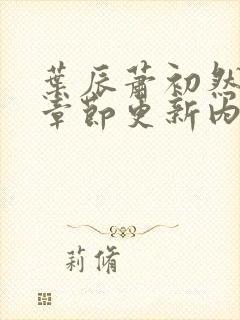 葉辰蕭初然
章節更新內
莉脩